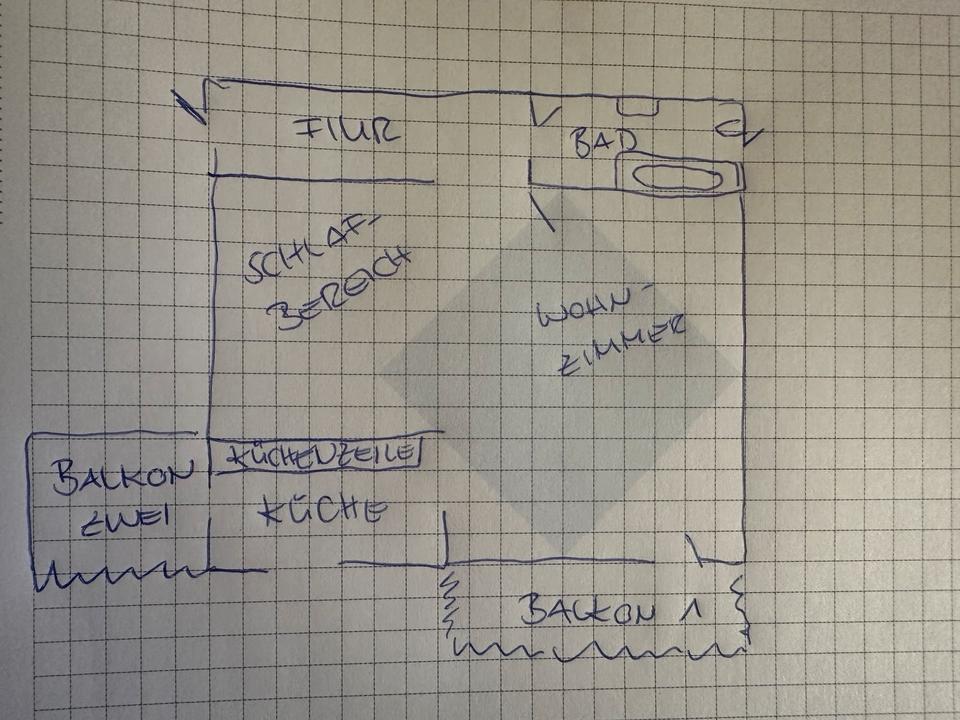 FLUR
BAD
SCHLAF-
BEREICH
WOHN-
ZIMMER
KÜCHENZEILE
BALKON
ZWEI
KÜCHE
BALKON 1